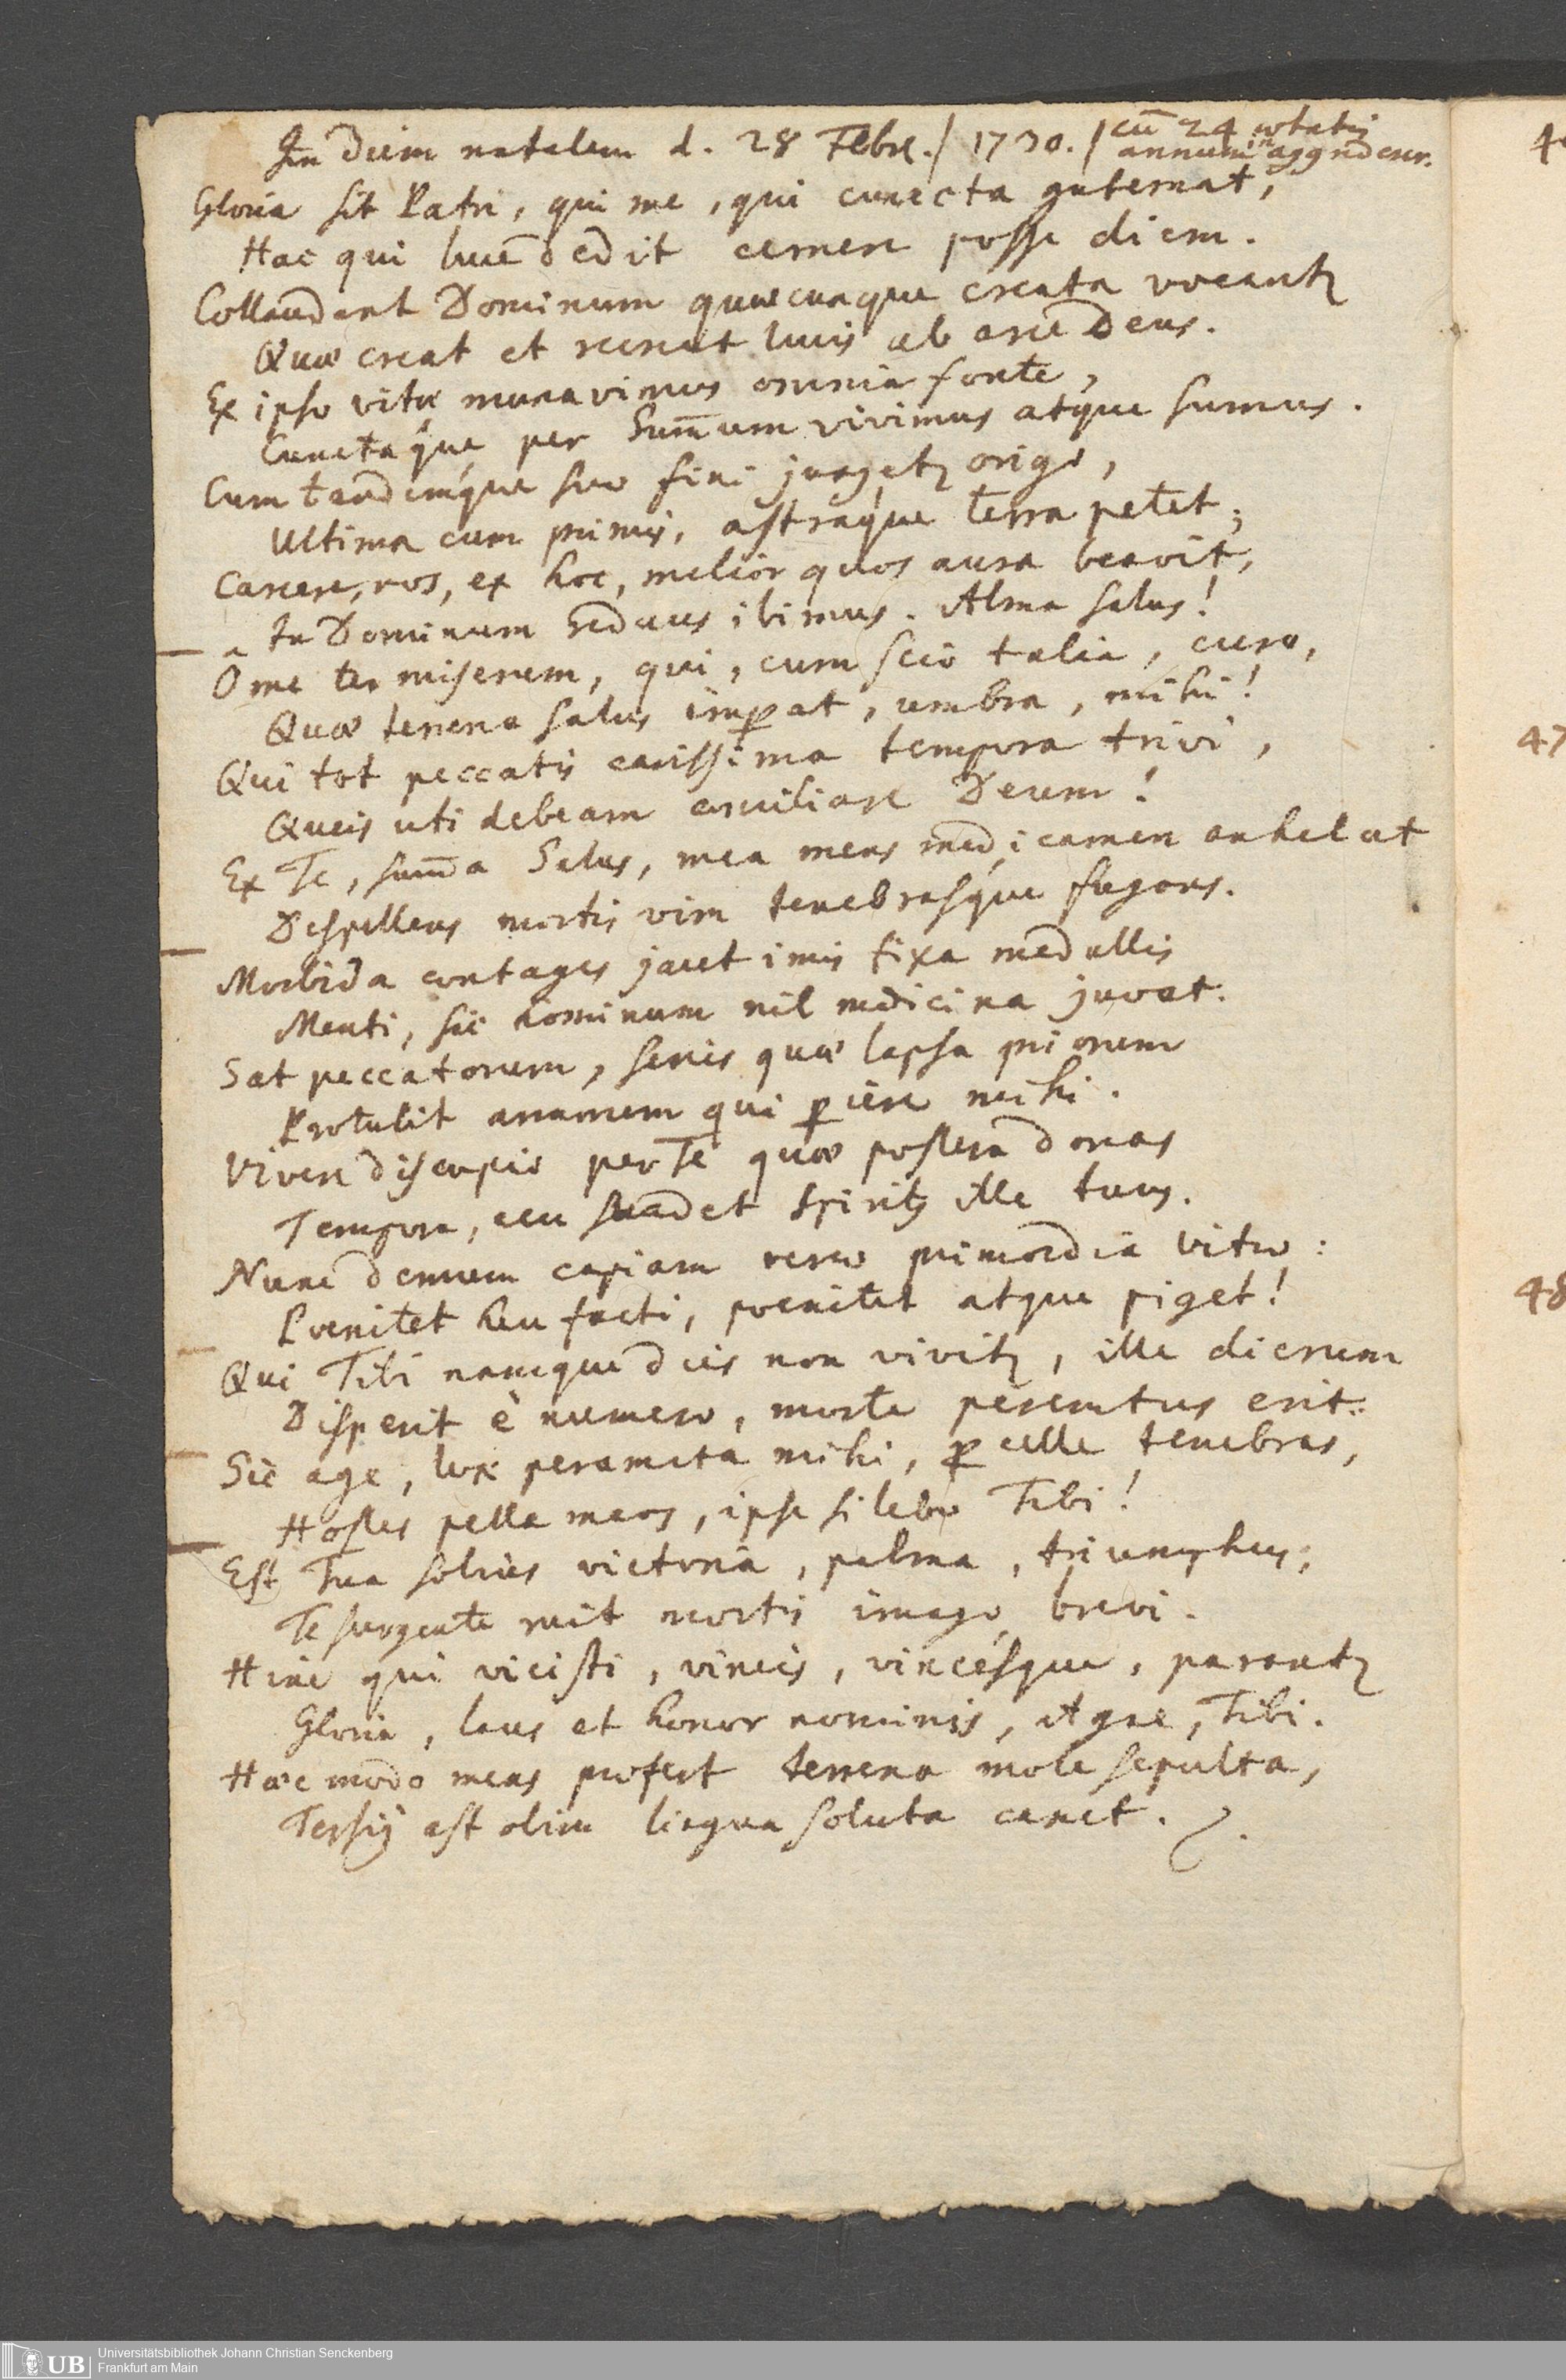 In diem natalem d. 28 Febr. / 1730. / cū 24 ætatis
annum aggrederer.
Gloria sit Patri, qui me, qui cuncta gubernat,
Hac qui luce dedit cernere posse diem.
Collaudent Dominum quæcunque creata vocantur
Quæ creat et recreat lucis ab arce Deus.
Ex ipso vitæ manavimus omnia fonte,
Cunctáque per Sum̄um vivimus atque sumus.
Cum tandemque suo fini jungetur origo,
Ultima cum primis, astraque terra petet;
Carcere, nos, ex hoc, melior quos aura beavit,
In Dominum reduces ibimus. Alma salus!
Ô me ter miserum, qui, cum scio talia, curo,
Quæ terrena salus imperat, umbra, mihi!
Qui tot peccatis carissima tempora trivi,
Queis uti debeam conciliare Deum!
Ex Te, sum̄a Salus, mea mens medicamen anhelat
Dispellens mortis vim tenebrasque fugans.
Morbida contages jacet imis fixa medullis
Menti, sic hominum nil medicina juvat.
Sat peccatorum, series quæ lapsa priorum
Protulit annorum qui periere mihi.
Vivere discupio per Te quæ postera donas
Tempora, ceu suadet Spiritus ille tuus.
Nunc demum capiam veræ primordia vitæ:
Poenitet heu facti, poenitet atque piget!
Qui Tibi namque dies non vivitur, ille dierum
Disperit è numero, morte peremtus erit.
Sic age, lux peramata mihi, percelle tenebras,
Hostes pelle meos, ipse silebo Tibi!
Est Tua solius victoria, palma, triumphus;
Te surgente ruit mortis imago brevi.
Hinc qui vicisti, vincis, vincésque, parantur
Gloria, laus et honor nominis, Agne, Tibi.
Hæc modo mens profert terrena mole sepulta,
Tersij ast olim lingua soluta canet.
47
48
UB Universitätsbibliothek Johann Christian Senckenberg
Frankfurt am Main